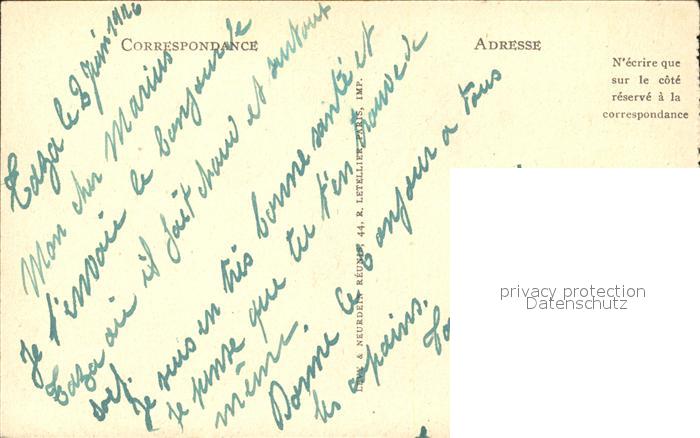 CORRESPONDANCE
ADRESSE
N'écrire que
sur le côté
réservé à la
correspondance
LÉVY & NEURDEIN RÉUNIS, 44, R. LETELLIER, PARIS, IMP.
Taza le 3 Juin 1926
Mon cher Marius
Je t'envoie le bonjour de
Taza où il fait chaud et surtout
soif.
Je suis en très bonne santé et
je pense que tu t'en trouve de
même.
Donne le bonjour a tous
les copains.
privacy protection
Datenschutz